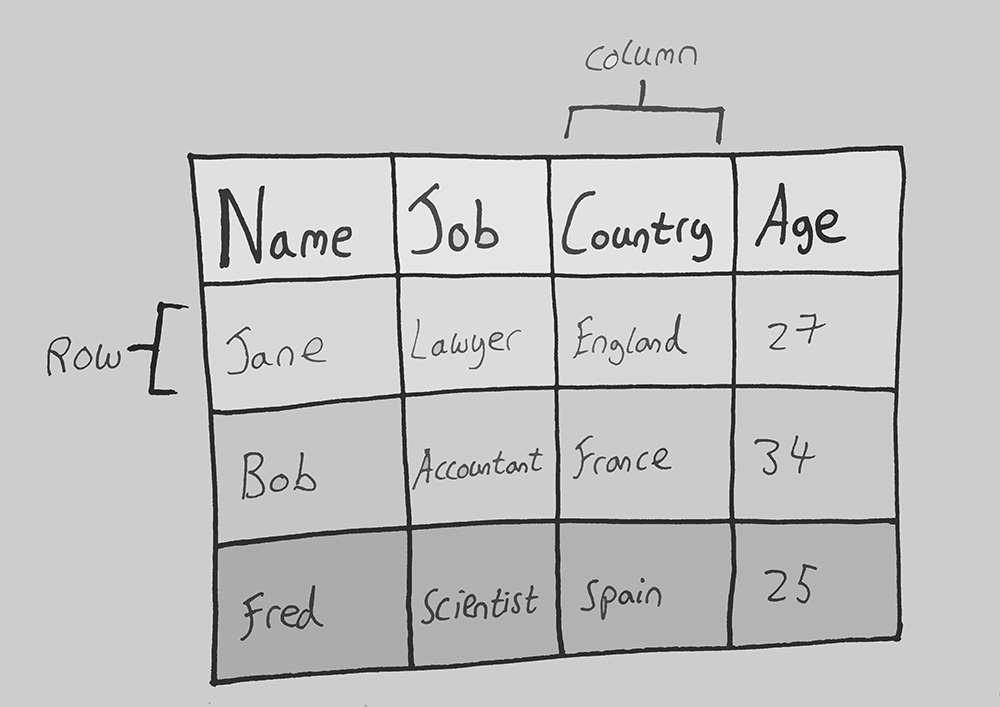 Column
Name Job Country Age
Row
Jane Lawyer England 27
Bob Accountant France 34
Fred Scientist Spain 25